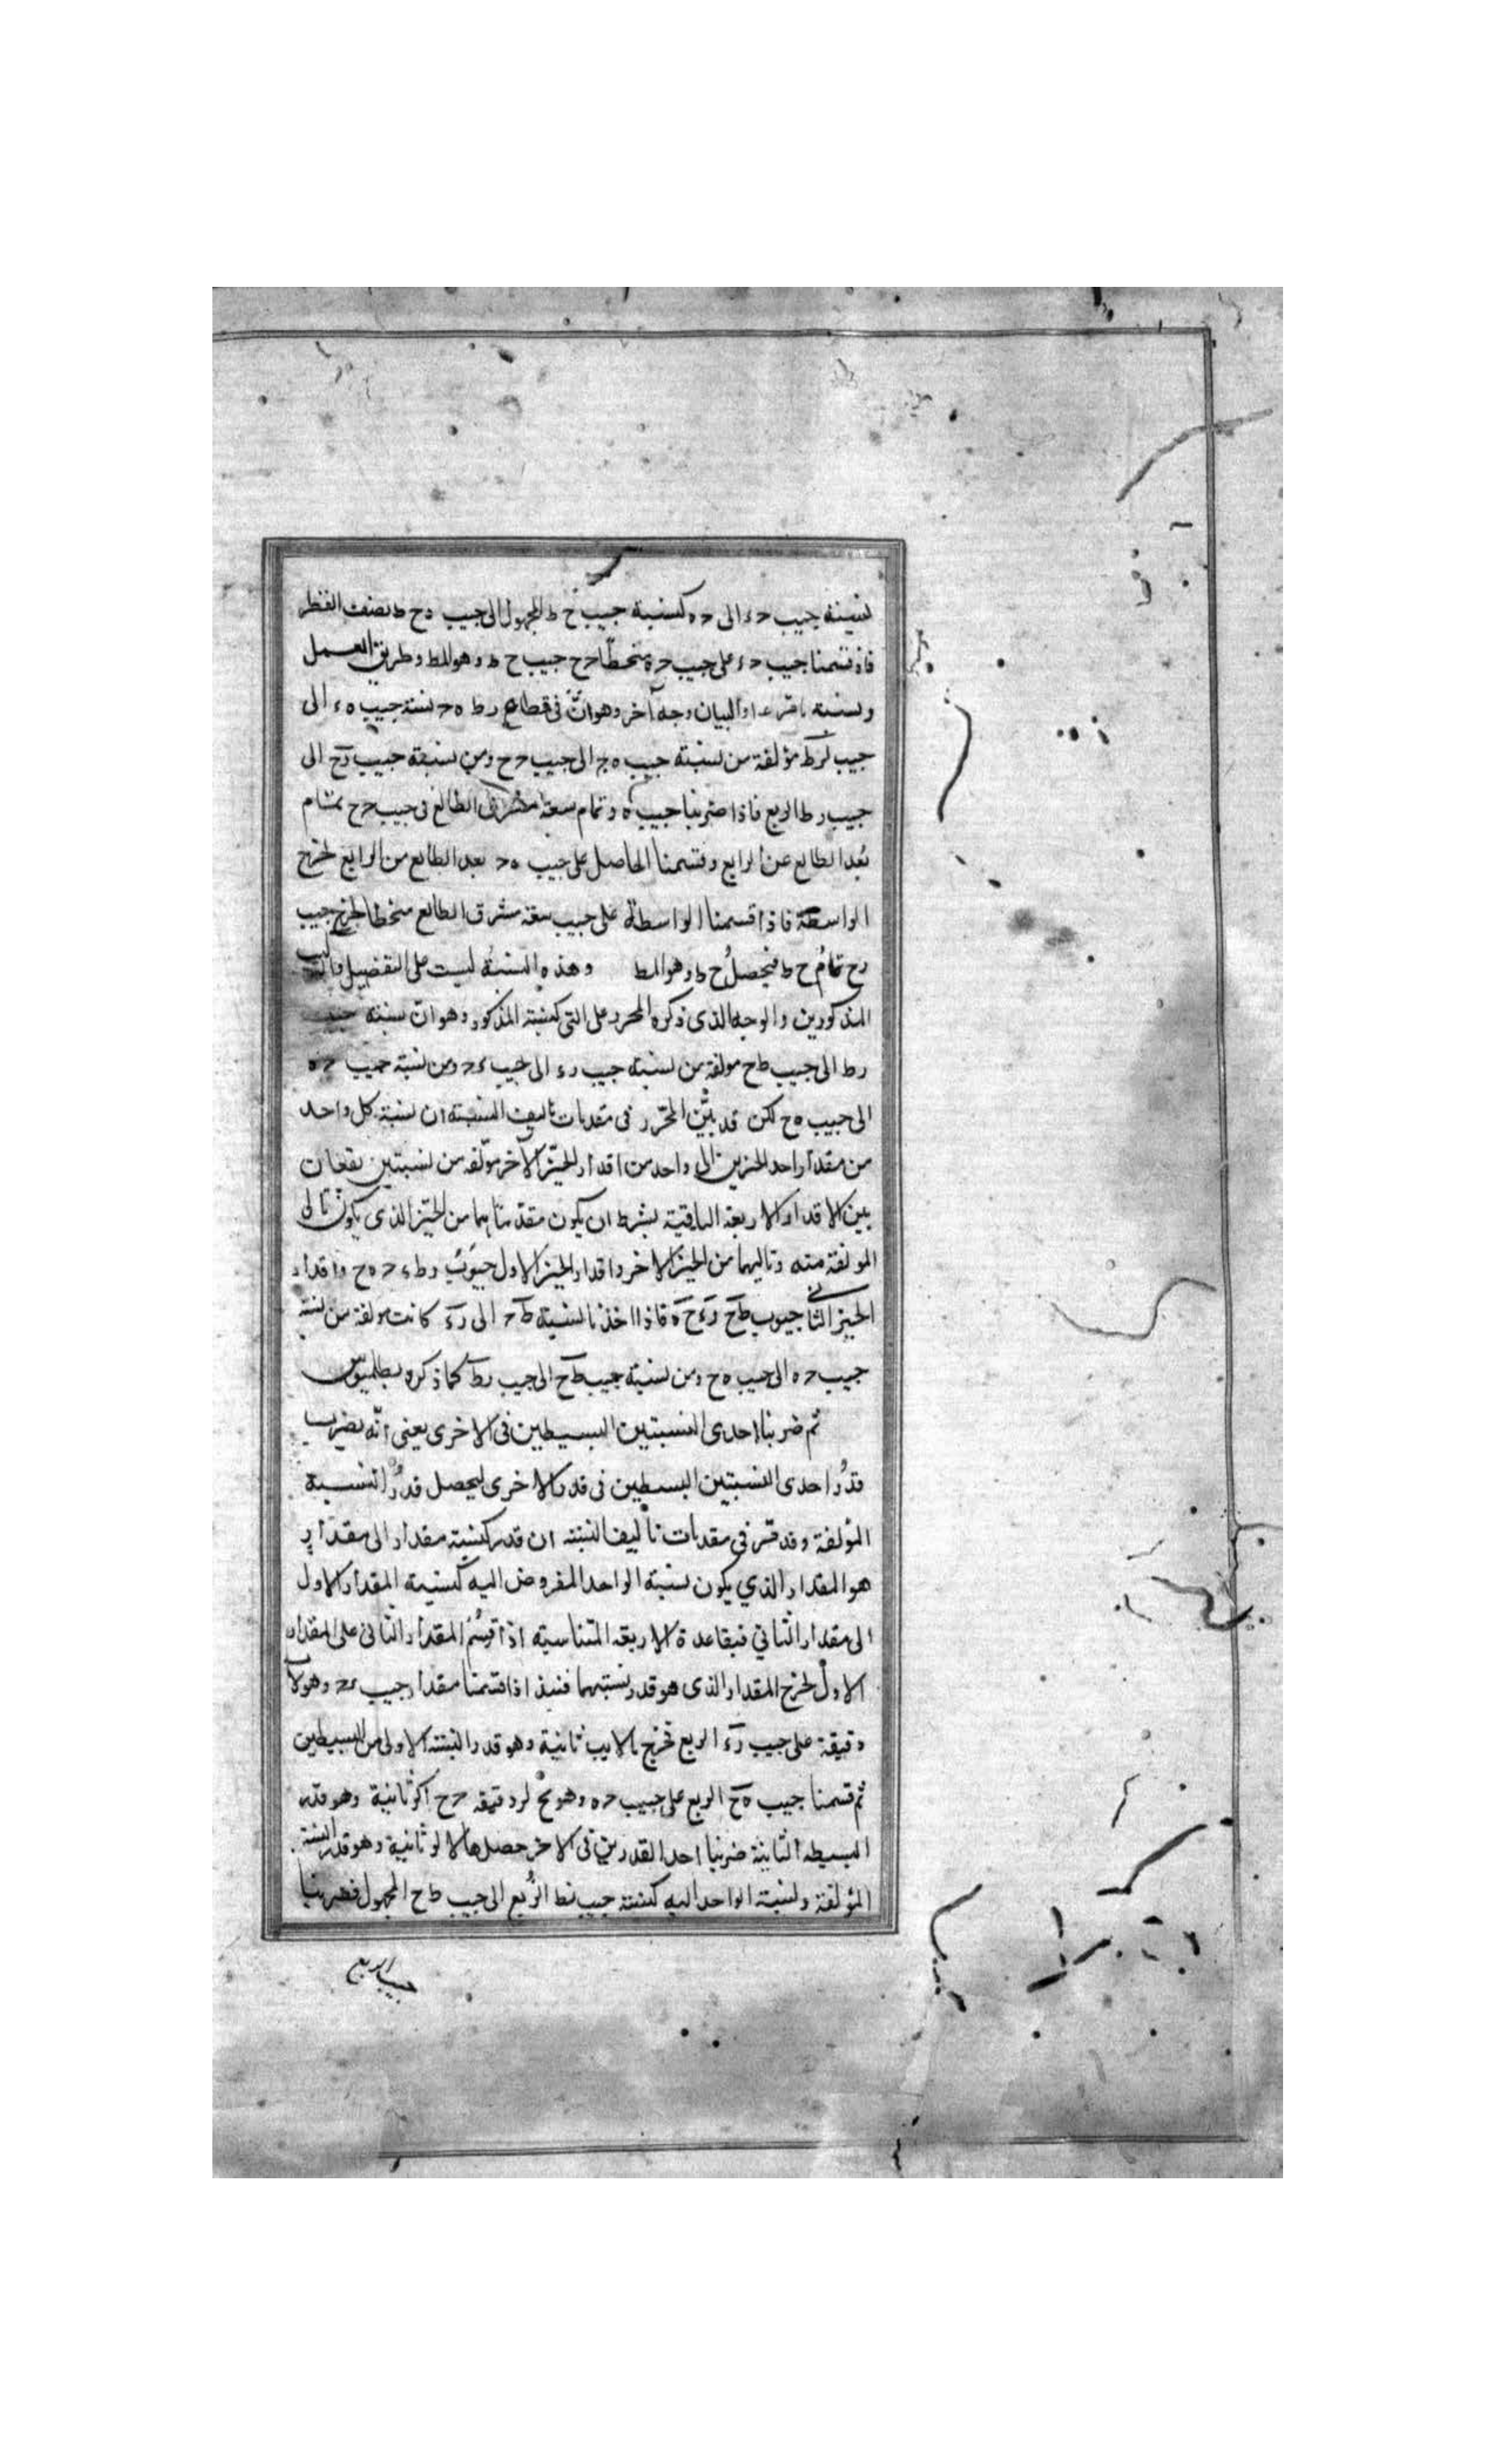 نسبة جيب حء الى حه كنسبة جيب ح ط المجهول الى جيب رح ط نصف القطر
فاذ قسمنا جيب حء على جيب حه منحطا خرج جيب ح ط وهو المط وطريق العمل
ونسبة ما وآلبيان وجه آخر وهو انّ في قطاع رط هح نسبة جيب هء الى
جيب ءرط مؤلفة من نسبة جيب هح الى جيب حح ومن نسبة جيب رح الى
جيب رط الربع فاذا ضربنا جيب ه وتمام سعة مشرق الطالع في جيب حح تمام
بعد الطالع عن الرابع وقسمنا الحاصل على جيب هح بعد الطالع من الرابع لخرج
الواسطة فاذا قسمنا الواسطة على جيب سعة مشرق الطالع منحطا لخرج جيب
رح تمام ح ط فيحصل ح ط وهو المط وهذه النسبة ليست على التفضيل والتركيب
المذكورين والوجه الذى ذكره المحرر على التى كنسبة المذكور وهو ان نسبة جيب
رط الى جيب طح مولفة من نسبة جيب رء الى جيب ءح ومن نسبة جيب حه
الى جيب هح لكن قد بيّن المحرّر فى مقدمات تاليف النسبة ان نسبة كل واحد
من مقدار احد الحيزين الى واحد من اقدار الحيّز الآخر مؤلفه من نسبتين يقعان
بين الاقدار الاربعة الباقية بشرط ان يكون مقدّماهما من الحيّز الذى يكون تالى
المولفة منه وتاليهما من الحيز الاخر واقدار الحيز الاول جيوب رط ءح هح واقدار
الحيز الثانى جيوب طح رء حه فاذا اخذنا نسبة طح الى رء كانت مولفة من نسبة
جيب حه الى جيب هح ومن نسبة جيب طح الى جيب رط كما ذكره بطلميوس
ثم ضربنا احدى النسبتين البسيطين فى الاخرى يعنى انّه يضرب
قدر احدى النسبتين البسيطين فى قدر الاخرى ليحصل قدر النسبة
المؤلفة وقد قرر في مقدمات تأليف النسبة ان قدر كنسبة مقدار الى مقدار
هو المقدار الذي يكون نسبة الواحد المفروض اليه كنسبة المقدار الاول
الى مقدار الثاني فبقاعدة الاربعة المتناسبة اذا قسم المقدار الثانى على المقدار
الاول لخرج المقدار الذى هو قدر نسبتهما فنئذ اذا قسمنا مقدار جيب ءح وهو لا
دقيقة على جيب رء الربع تخرج ثانية وهو قدر النسبة الاولى من البسيطين
ثم قسمنا جيب هح الربع على جيب حه وهو لر دقيقة خرج ثانية وهو قدر
البسيطه الثانية ضربنا احد القدرين فى الاخر حصل ثانية وهو قدر النسبة
المؤلفة ونسبة الواحد اليه كنسبة جيب نط الربع الى جيب طح المجهول فضربنا
جيب الربع